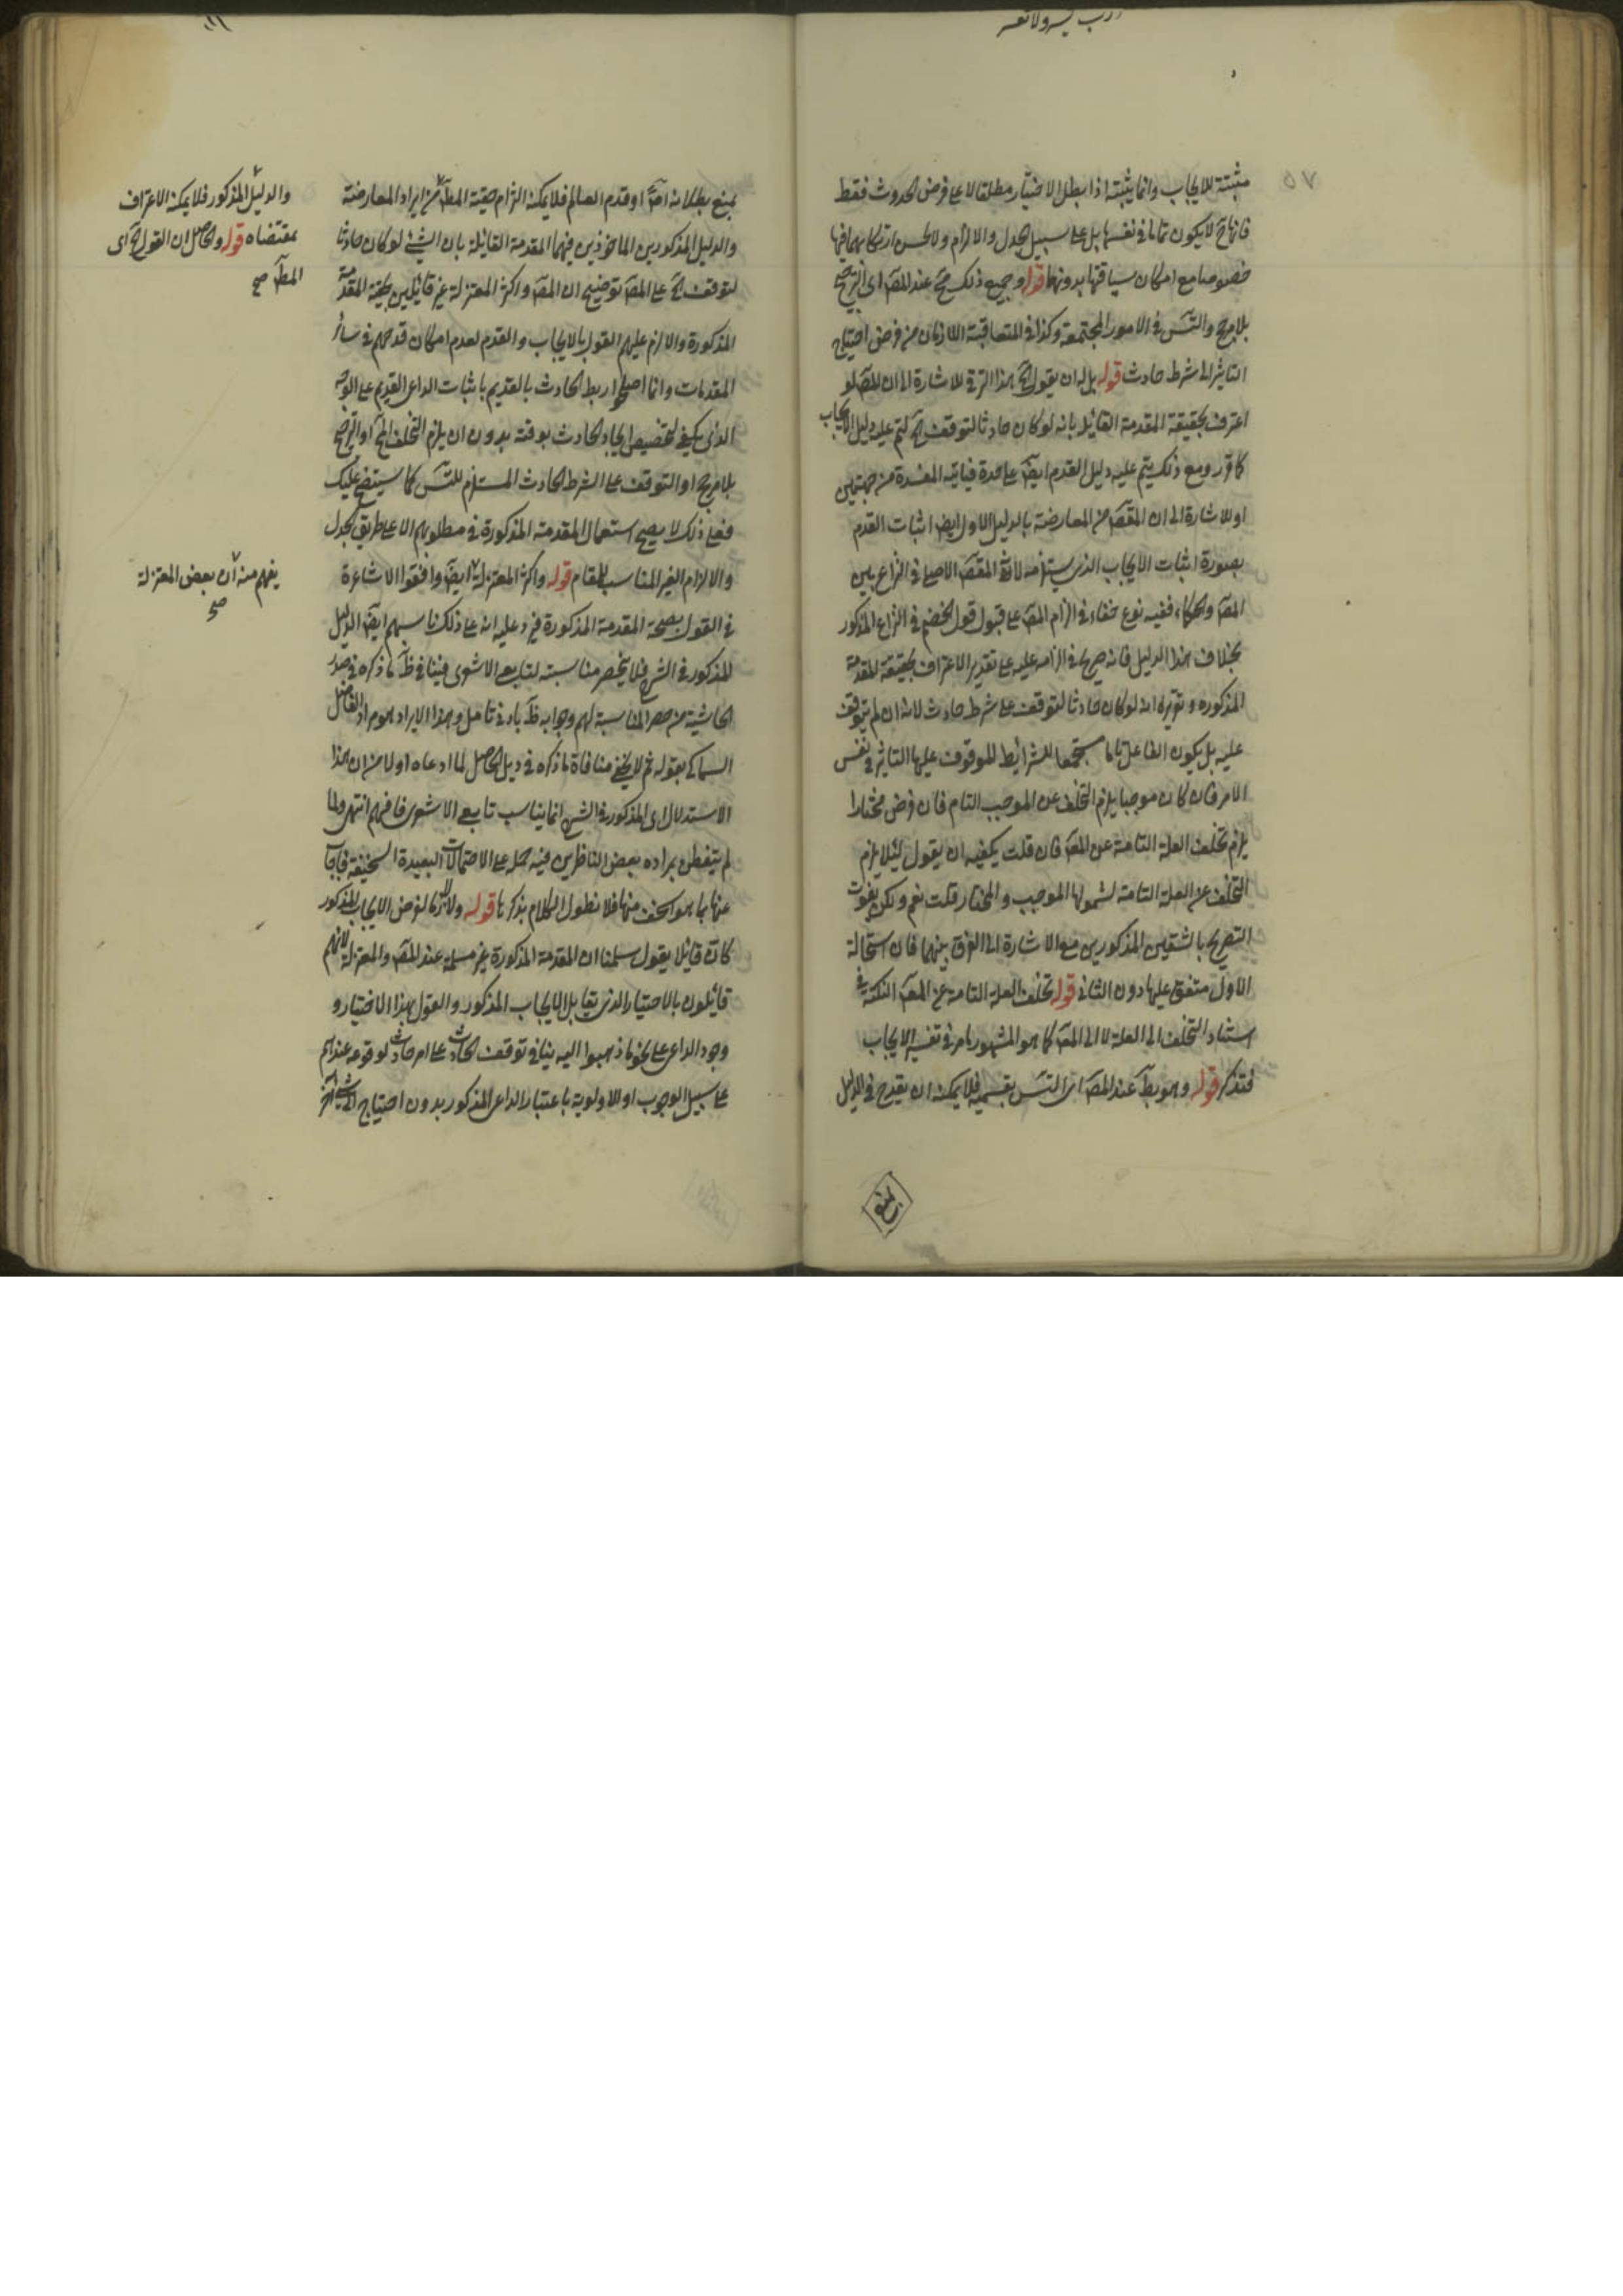 ٥٧
مثبتة للايجاب وانما يثبته اذا بطل الاختيار مطلقا لا على فرض الحدوث فقط
فانها ح لا يكون تماما في نفسها بل على سبيل الجدل والالزام ولا يحسن ارتكابهما فيها
خصوصا مع امكان سياقتها بدونهما قوله وجميع ذلك مح عند المصـ اى الترجيح
بلا مرجح والتسـ في الامور المجتمعة وكذا في المتعاقبة اللازمان من فرض احتياج
التاثير الى شرط حادث قوله بل له ان يقول الخ هذا الترقي للاشارة الى ان المصـ لو
اعترف بحقيقة المقدمة القائلة بانه لو كان حادثا لتوقف الخ ليتم عليه دليل الايجاب
كما قرر ومع ذلك يتم عليه دليل القدم ايضـ على حدة فياتيه المفسدة من جهتين
او للاشارة الى ان المقصـ من المعارضة بالدليل الاول ايضا اثبات القدم
بصورة اثبات الايجاب الذي يستلزمه لانه المقصـ الاصلي في النزاع بين
المصـ والحكماء ففيه نوع خفاء في الزام المصـ على قبول قول الخصم في النزاع المذكور
بخلاف هذا الدليل فانه صريح في الزامه عليه على تقدير الاعتراف بحقيقة المقدمة
المذكوره وتقريره انه لو كان حادثا لتوقف على شرط حادث لانه ان لم يتوقف
عليه بل يكون الفاعل تاما مستجمعا للشرائط الموقوف عليها التاثير في نفس
الامر فان كان موجبا يلزم التخلف عن الموجب التام فان فرض مختارا
يلزم تخلف العلة التامة عن المصـ فان قلت يكفيه ان يقول لئلا يلزم
التخلف عن العلة التامة لشمولها الموجب والمختار قلت نعم ولكن يفوت
التصريح بالشقين المذكورين مع الاشارة الى الفرق بينهما فان استحالة
الاول متفق عليها دون الثاني قوله تخلف العلة التامة عن المصـ النكتة في
استناد التخلف الى العلة لا الى المصـ كما هو المشهور ما مر في تفسير الايجاب
فتذكر قوله وهو بط عند المصـ اى التسـ بقسميه فلا يمكنه ان يقدح في الدليل
بمنع بطلانه اصـ او قدم العالم فلا يمكنه الزام حقية المط من ايراد المعارضة
والدليل المذكورين الماخوذين فيهما المقدمة القائلة بان الشيء لو كان حادثا
لتوقف الخ على المصـ توضيح ان المصـ واكثر المعتزلة غير قائلين بحقية المقدمة
المذكورة والا لزم عليهم القول بالايجاب والقدم لعدم امكان قدحهم في سائر
المقدمات وانما اصلحوا ربط الحادث بالقديم باثبات الداعي القديم على الوجه
الذي يكفي لتخصيص ايجاد الحادث بوقته بدون ان يلزم التخلف المح او الترجيح
بلا مرجح او التوقف على الشرط الحادث المستلزم للتسـ كما سيتضح عليك
فعلى ذلك لا يصح استعمال المقدمة المذكورة في مطلوبهم الا على طريق الجدل
والالزام الغير المناسب للمقام قوله واكثر المعتزلة ايضـ وافقوا الاشاعرة
في القول بصحة المقدمة المذكورة فيرد عليه انه على ذلك يناسبهم ايضـ الدليل
المذكور في الشرح فلا ينحصر مناسبته لتابعي الاشعرى فينافي ظـ ما ذكره في صدر
الحاشية من حصر المناسبة لهم وجوابه ظـ بادنى تامل وهذا الايراد هو مراد الفاضل
السماكى بقوله ثم لا يخفى منافاة ما ذكره في ذيل الحاصل لما ادعاه اولا من ان هذا
الاستدلال اى المذكور في الشرح انما يناسب تابعي الاشعرى فافهم انتهى ولما
لم يتفطن بمراده بعض الناظرين فيه حمله على الاحتمالات البعيدة السخيفة فاجاب
عنها بما هو اسخف منها فلا نطول الكلام بذكرها قوله ولا لفرض الايجاب المذكور
كان قائلا يقول سلمنا ان المقدمة المذكورة غير مسلمة عند المصـ والمعتزلة لانهم
قائلون بالاختيار الذي يقابل الايجاب المذكور والقول بهذا الاختيار و
وجود الداعي على نحو ما ذهبوا اليه ينافي توقف الحادث على امر حادث لوقوعه عندهم
على سبيل الوجوب او الاولوية باعتبار الداعي المذكور بدون احتياج الى شيء آخر
والدليل المذكور فلا يمكنه الاعتراف
بمقتضاه قوله والحاصل ان القول الخ اى
المط صح
يفهم منه ان بعض المعتزلة
صح
بلغ